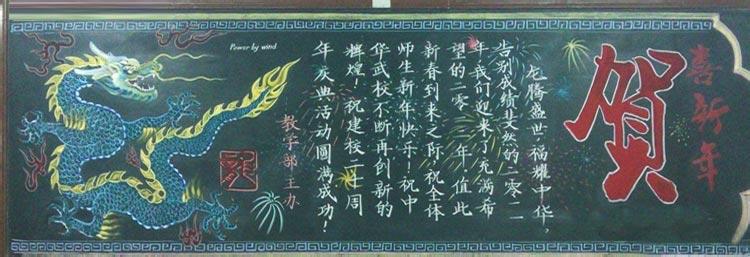 喜新年
贺
龙腾盛世,福耀中华,
告别成绩斐然的二零一
年我们迎来了充满希
望的二零 年,值此
新春到来之际祝全体
师生新年快乐!祝中
华武校不断再创新的
辉煌!祝建校二十周
年庆典活动圓满成功!
教学部主办
Power by wind